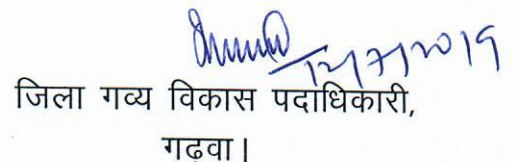 12/7/2019
जिला गव्य विकास पदाधिकारी,
गढ़वा।